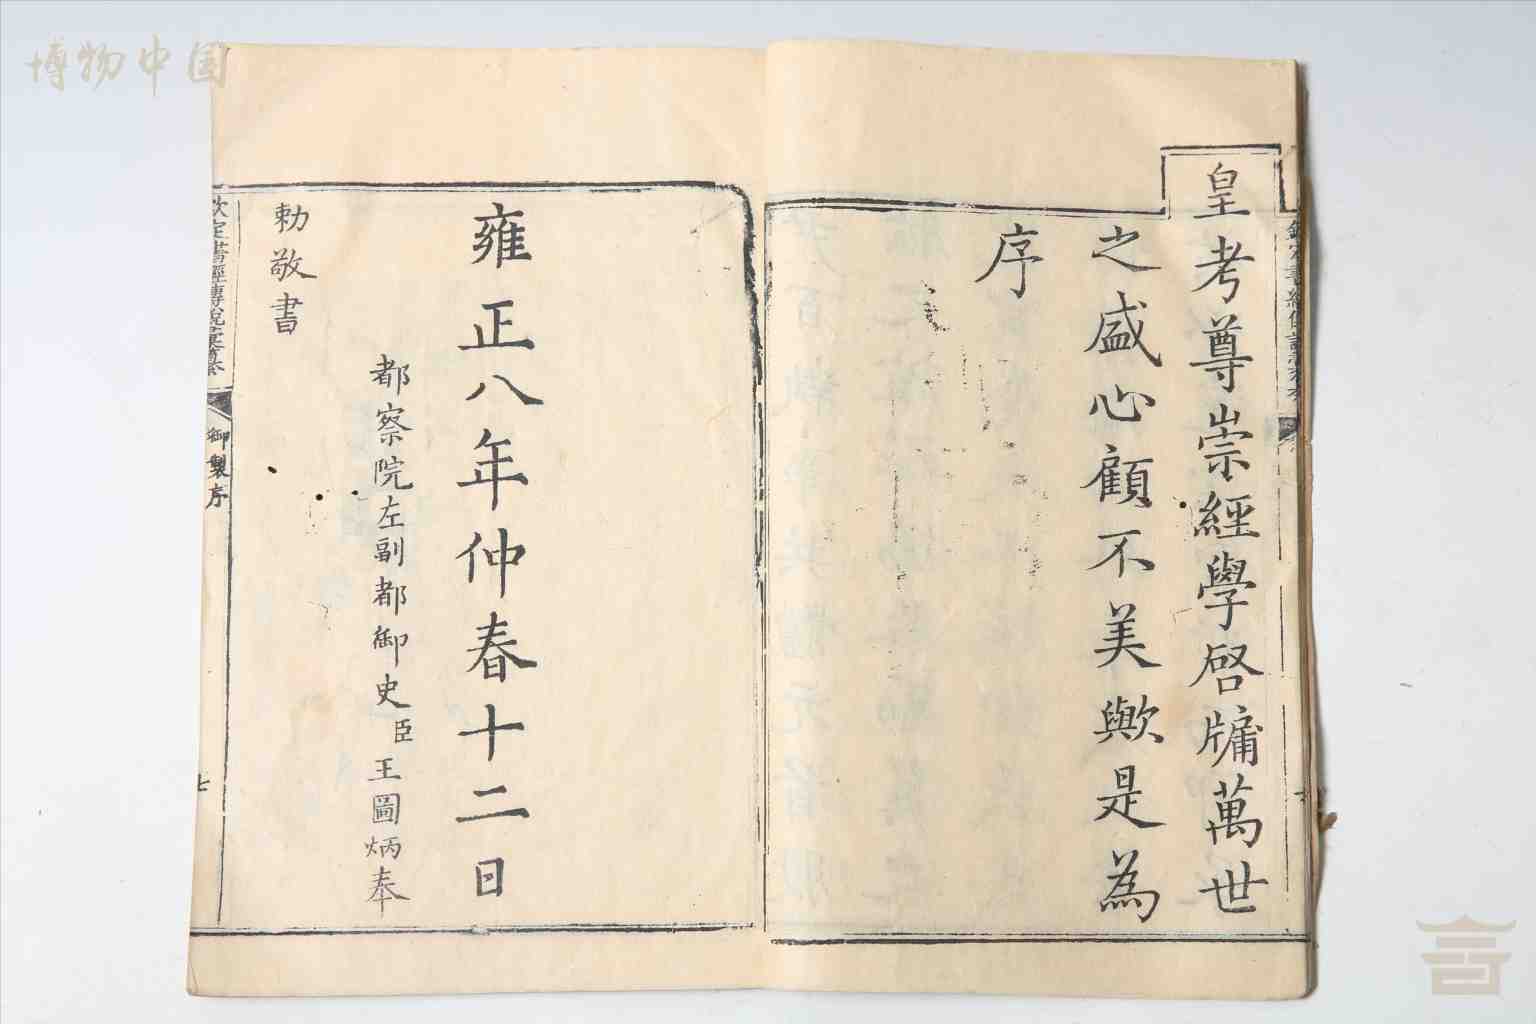 博物中国
皇考尊崇經學啓牖萬世
之盛心顧不美歟是為
序
雍正八年仲春十二日
都察院左副都御史臣王圖炳奉
勅敬書
欽定書經傳說彙纂
御製序
七